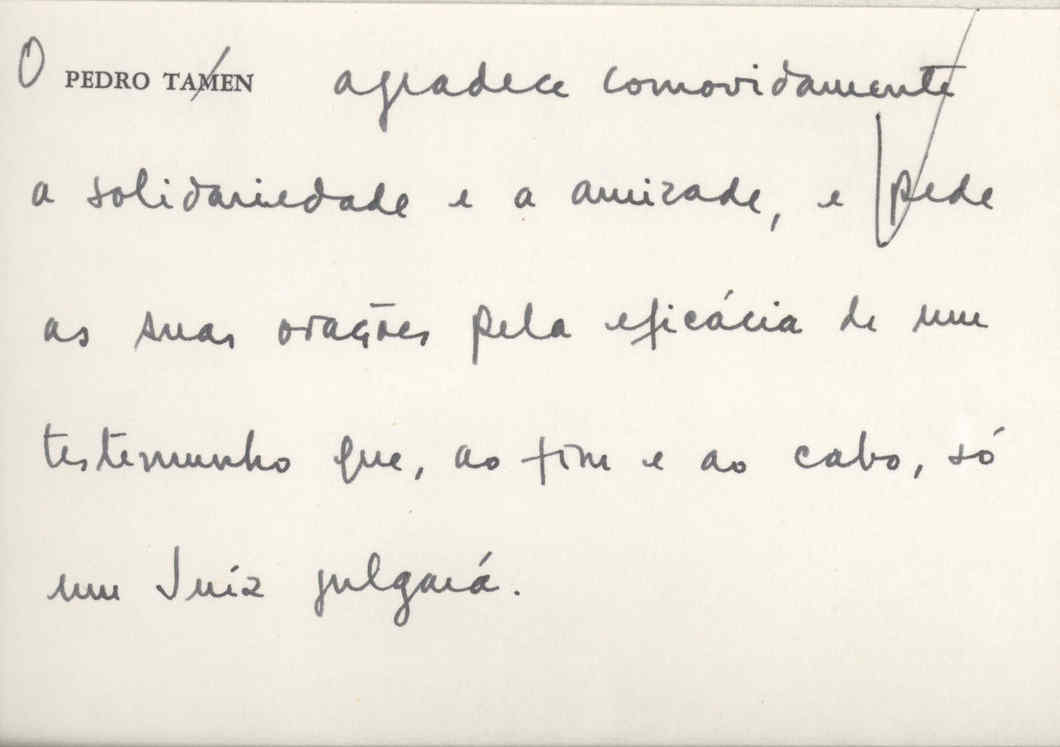 O PEDRO TAMEN agradece comovidamente
a solidariedade e a amizade, e pede
as suas orações pela eficácia de um
testemunho que, ao fim e ao cabo, só
um Juiz julgará.